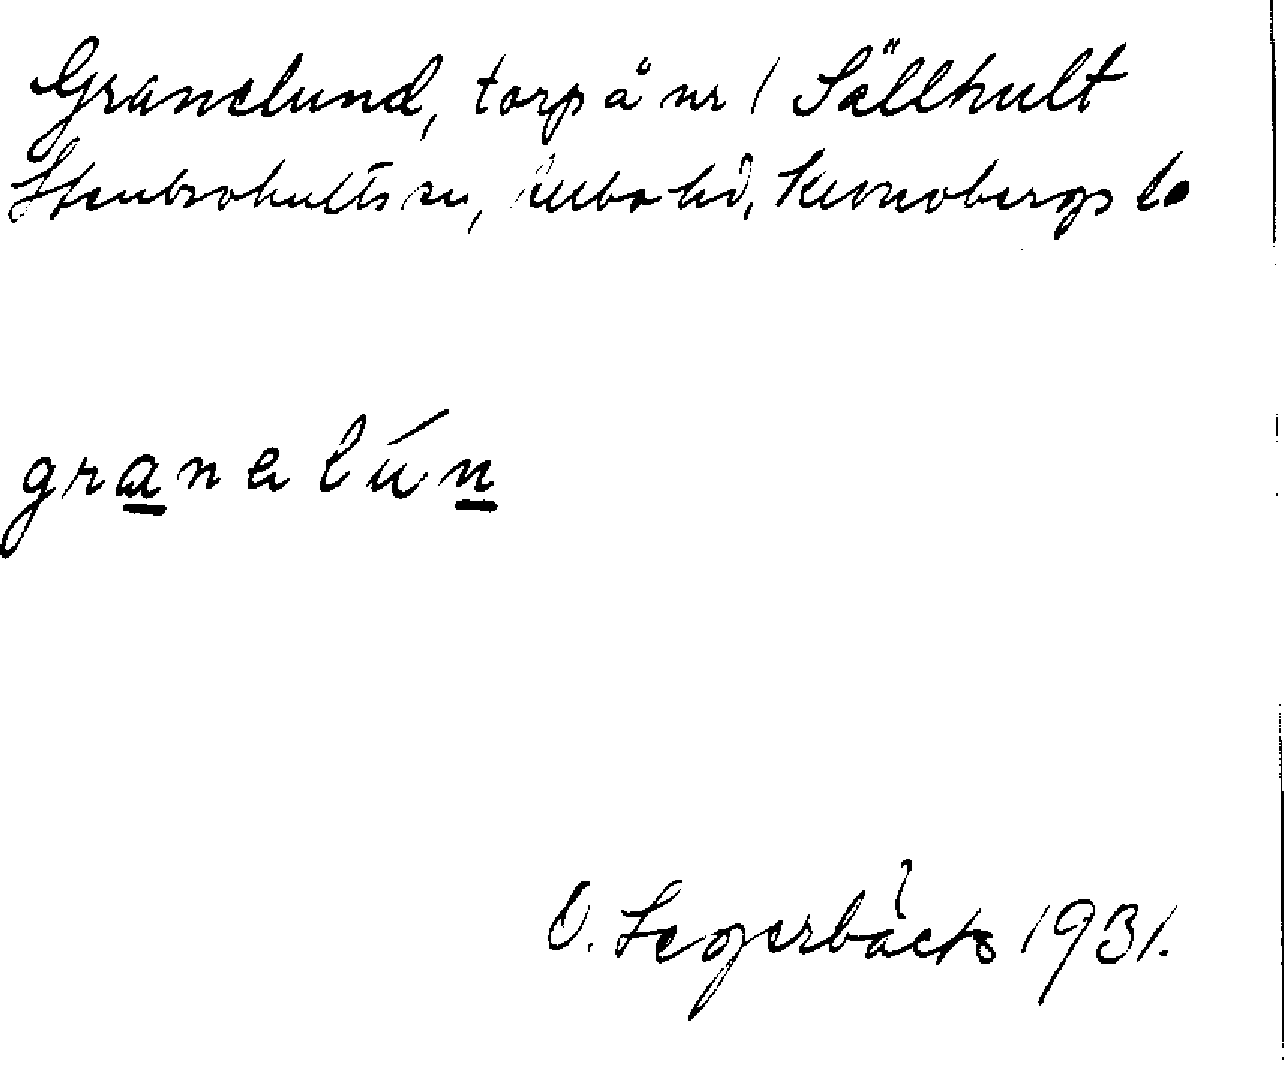 Granelund, torp å nr 1 Sällhult
Stenbrohults sn, Allbo hd, Kronobergs lo
granelún
O. Segerbäck 1931.